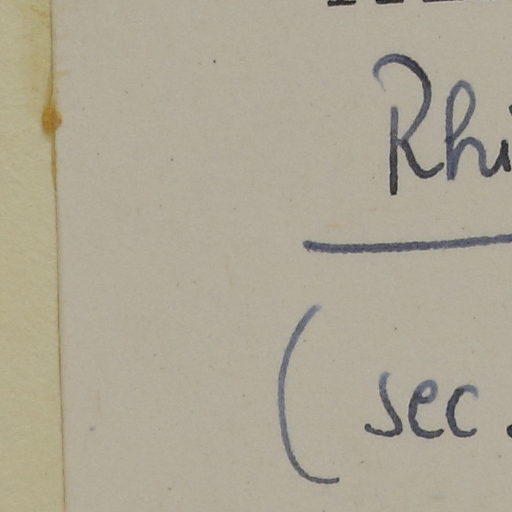 Rhi
(sec.